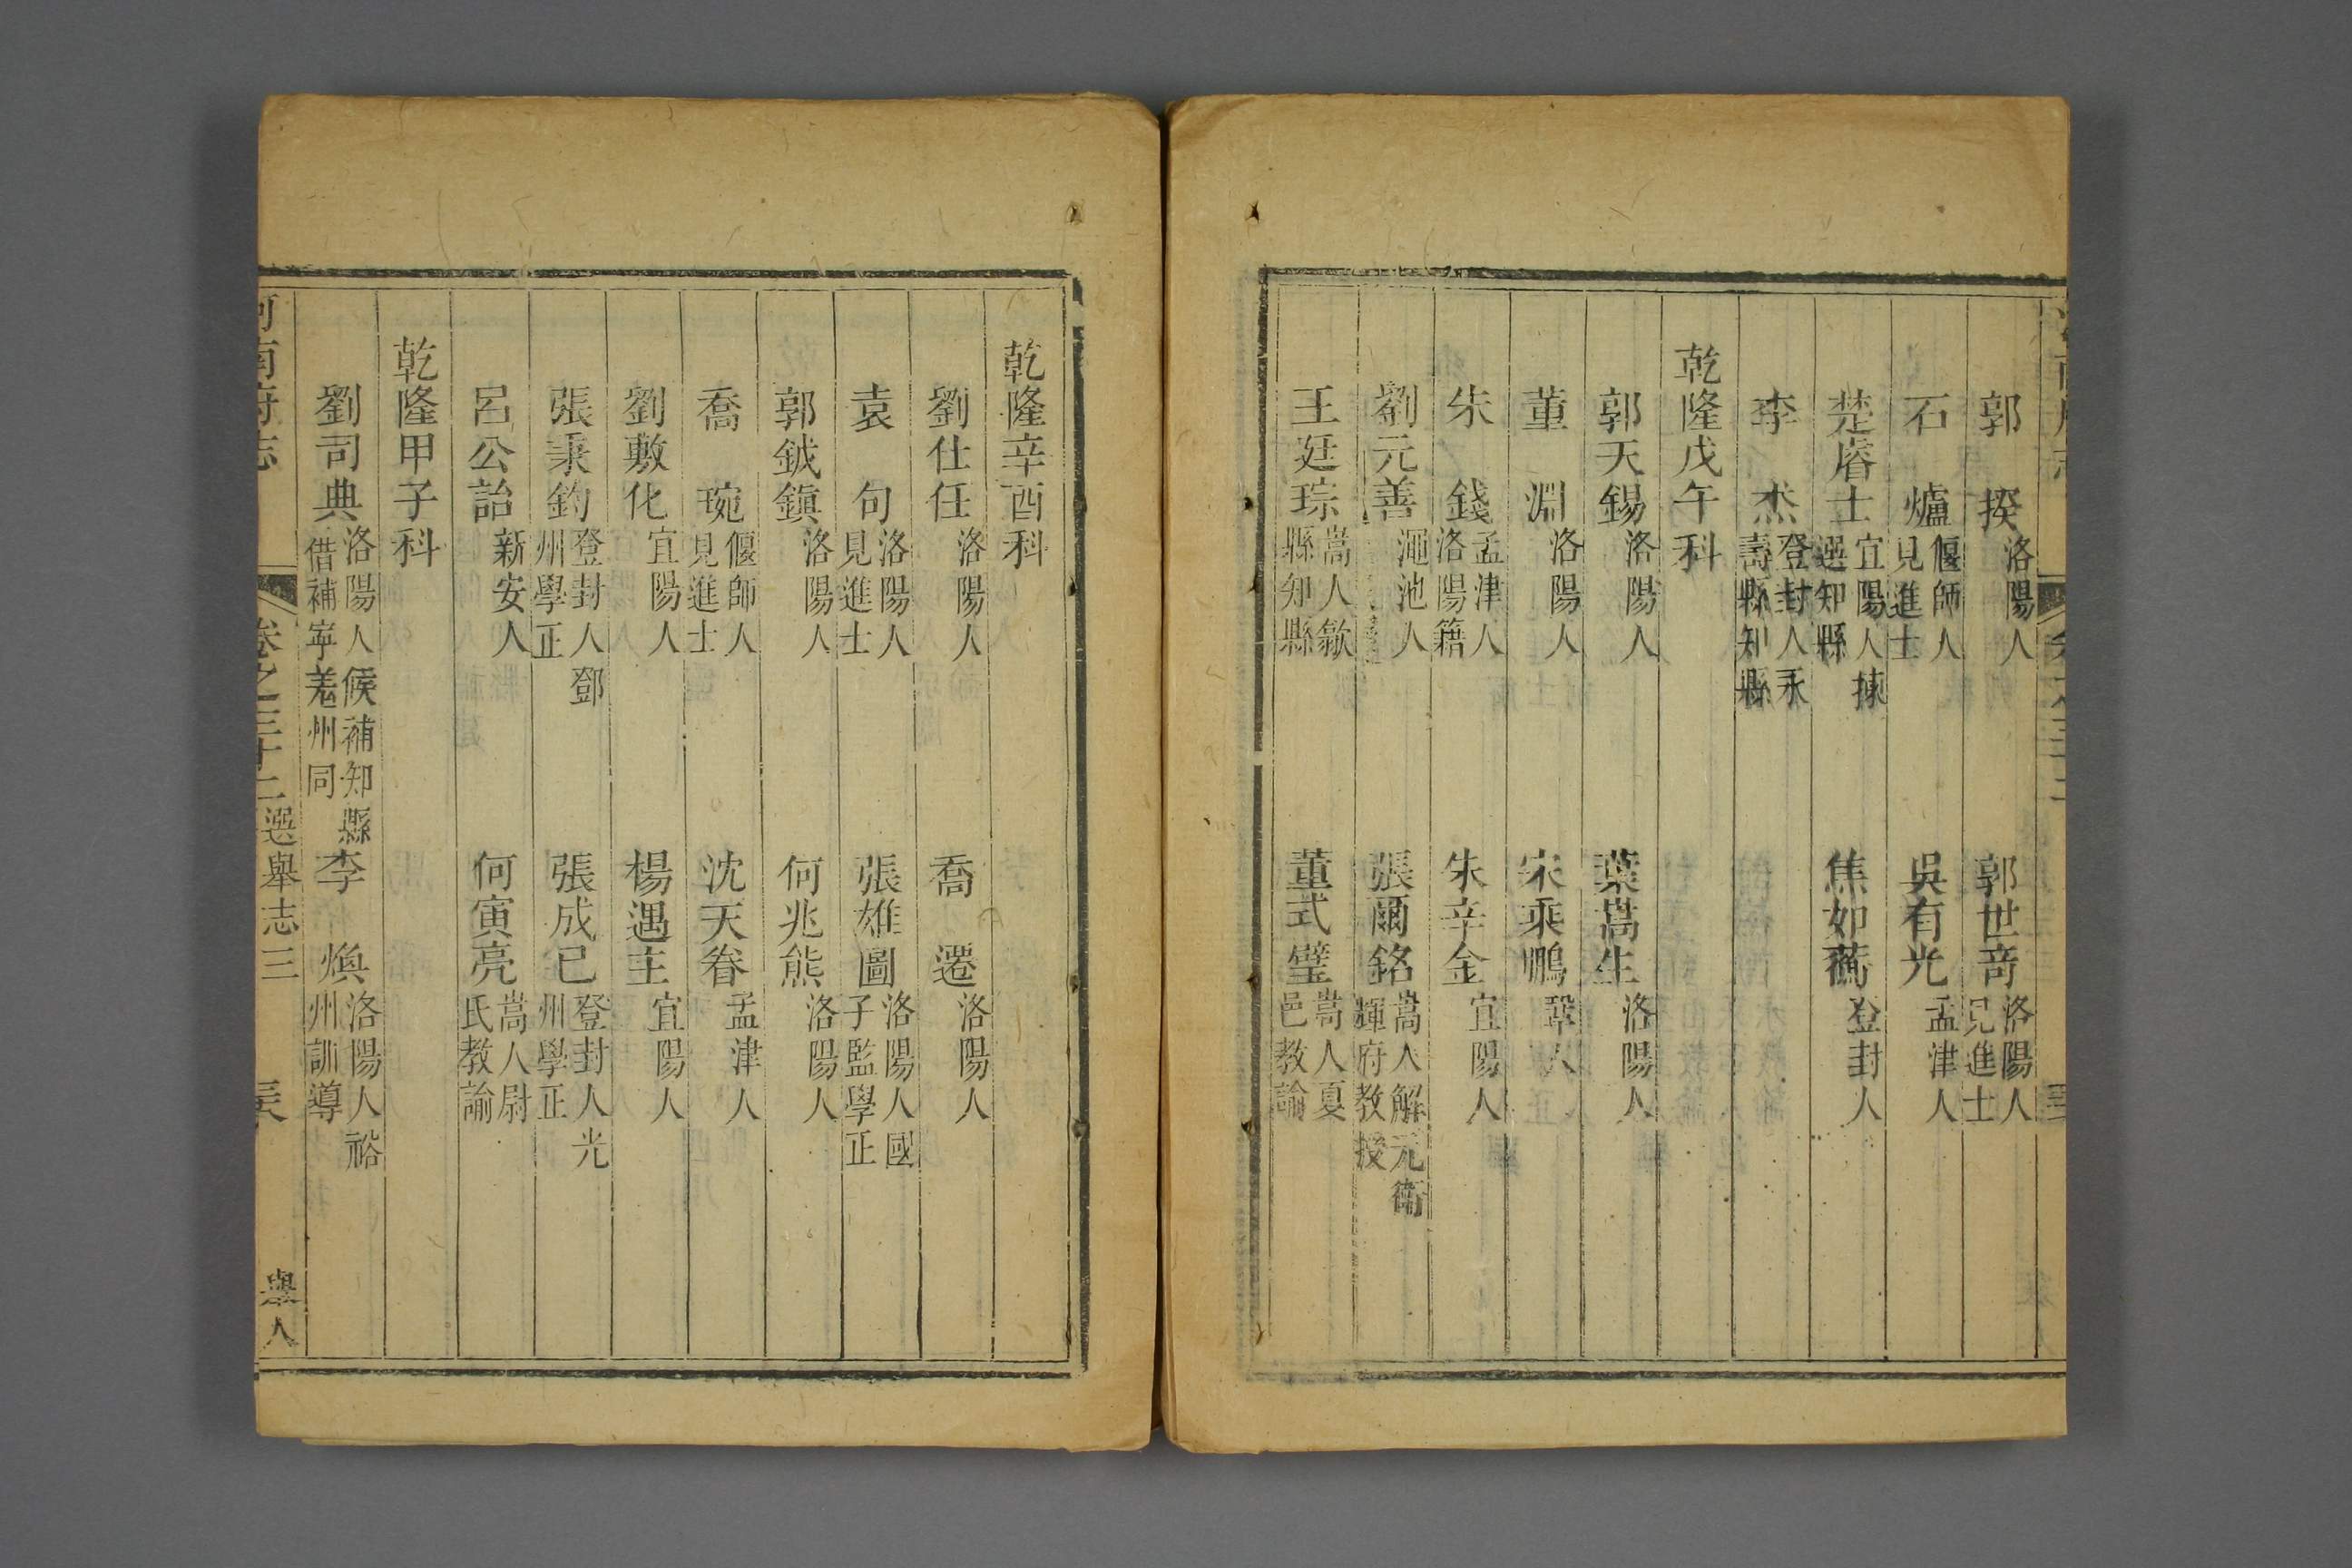 郭 揆 洛陽人 郭世奇 洛陽人見進士
石 爐 偃師人見進士 吳有光 孟津人
楚濬士 宜陽人揀選知縣 焦如蘅 登封人
李 杰 登封人永壽縣知縣
乾隆戊午科
郭天錫 洛陽人 葉嵩生 洛陽人
董 淵 洛陽人 宋乘鵬 鞏人
朱 錢 孟津人洛陽籍 朱辛金 宜陽人
劉元善 澠池人 張爾銘 嵩人解元衛輝府教授
王廷琮 嵩人歙縣知縣 董式璧 嵩人夏邑教諭
乾隆辛酉科
劉仕任 洛陽人 喬 遷 洛陽人
袁 句 洛陽人見進士 張雄圖 洛陽人國子監學正
郭鉞鎮 洛陽人 何兆熊 洛陽人
喬 琬 偃師人見進士 沈天眷 孟津人
劉敷化 宜陽人 楊遇主 宜陽人
張秉鈞 登封人鄧州學正 張成已 登封人光州學正
呂公詒 新安人 何寅亮 嵩人尉氏教諭
乾隆甲子科
劉司典 洛陽人候補知縣借補寧羌州同 李 煥 洛陽人裕州訓導
河南府志 卷之三十二 選舉志三 舉人